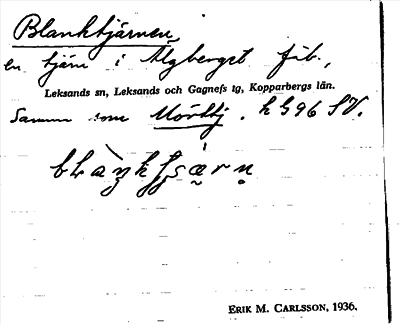 Blanktjärnen
en tjärn i Älgberget fäb.,
Leksands sn, Leksands och Gagnefs tg, Kopparbergs län.
Samma som Mörttj. k 596 SV.
ERIK M. CARLSSON, 1936.